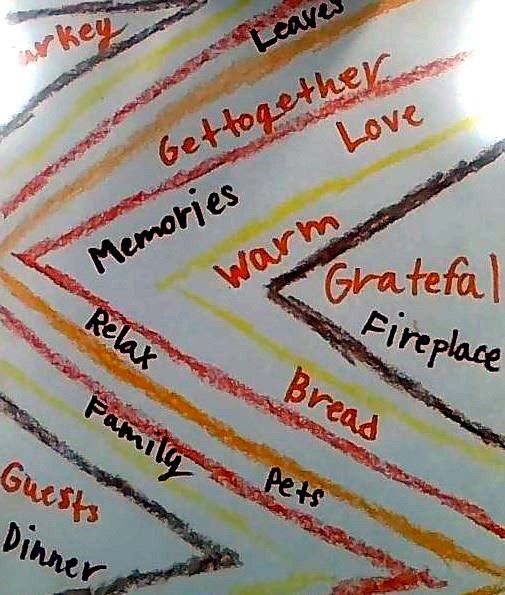 urkey
Leaves
Gettogether
Love
Memories
Warm
Grateful
Fireplace
Relax
Bread
Family
Pets
Guests
Dinner